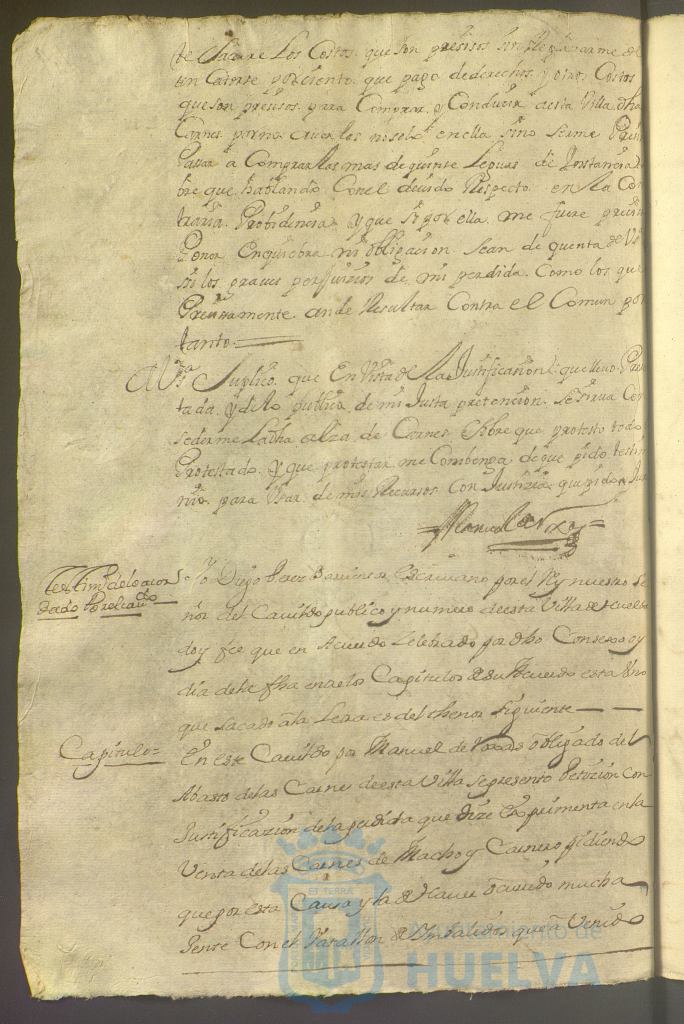 de Sacare Los Costos que son presisos sin
un Catorse por ciento que pago de derechos y otros Costos
que son presisos para Comprar y Conducir a esta Villa dha
Carnes por no averlas no solo en ella sino serme
Pasar a Comprarlas mas de quinse Leguas de distancia
bre que hablando Con el devido Respecto en la Con
traria Probidensia y que si por ella me fuere
Senor en mi obligacion sean de quenta de
los graves perjuizios de mi perdida Como los que
ande Resultar Contra el Comun por
tanto
A Suplico que En Vista de la Justificazion que llevo
tada y de lo publico de mi Justa pretencion se sirva Con
sederme La dha alza de Carnes sobre que protesto todo
Protestado y que protestar me Combenga de que pido testim
nio para Usar de mis Recursos Con Justizia que pido
Manuel de
Testimo delo acor
dado Por el cavdo
Yo Diego Perez Escrivano por el Rey nuestro Se
nor del Cavildo publico y numero de esta Villa de Huelva
doy fee que en Acuerdo Zelebrado por dho Consexo oy
dia de la fha entre los Capitulos de su Acuerdo esta Uno
que sacado a la Letra es del thenor Siguiente
Capitulo=
En este Cavildo por Manuel de obligado del
Abasto de las Carnes de esta Villa se presento Petizion Con
Justificazion de la perdida que dize Exprimenta en la
Venta de las Carnes de Macho y Carnero pidiendo
que por esta Causa y la de haver ocurrido mucha
Jente Con el Batallon de Ynbalidos que a Venido
ET TERRÆ
Ayuntamiento de
HUELVA